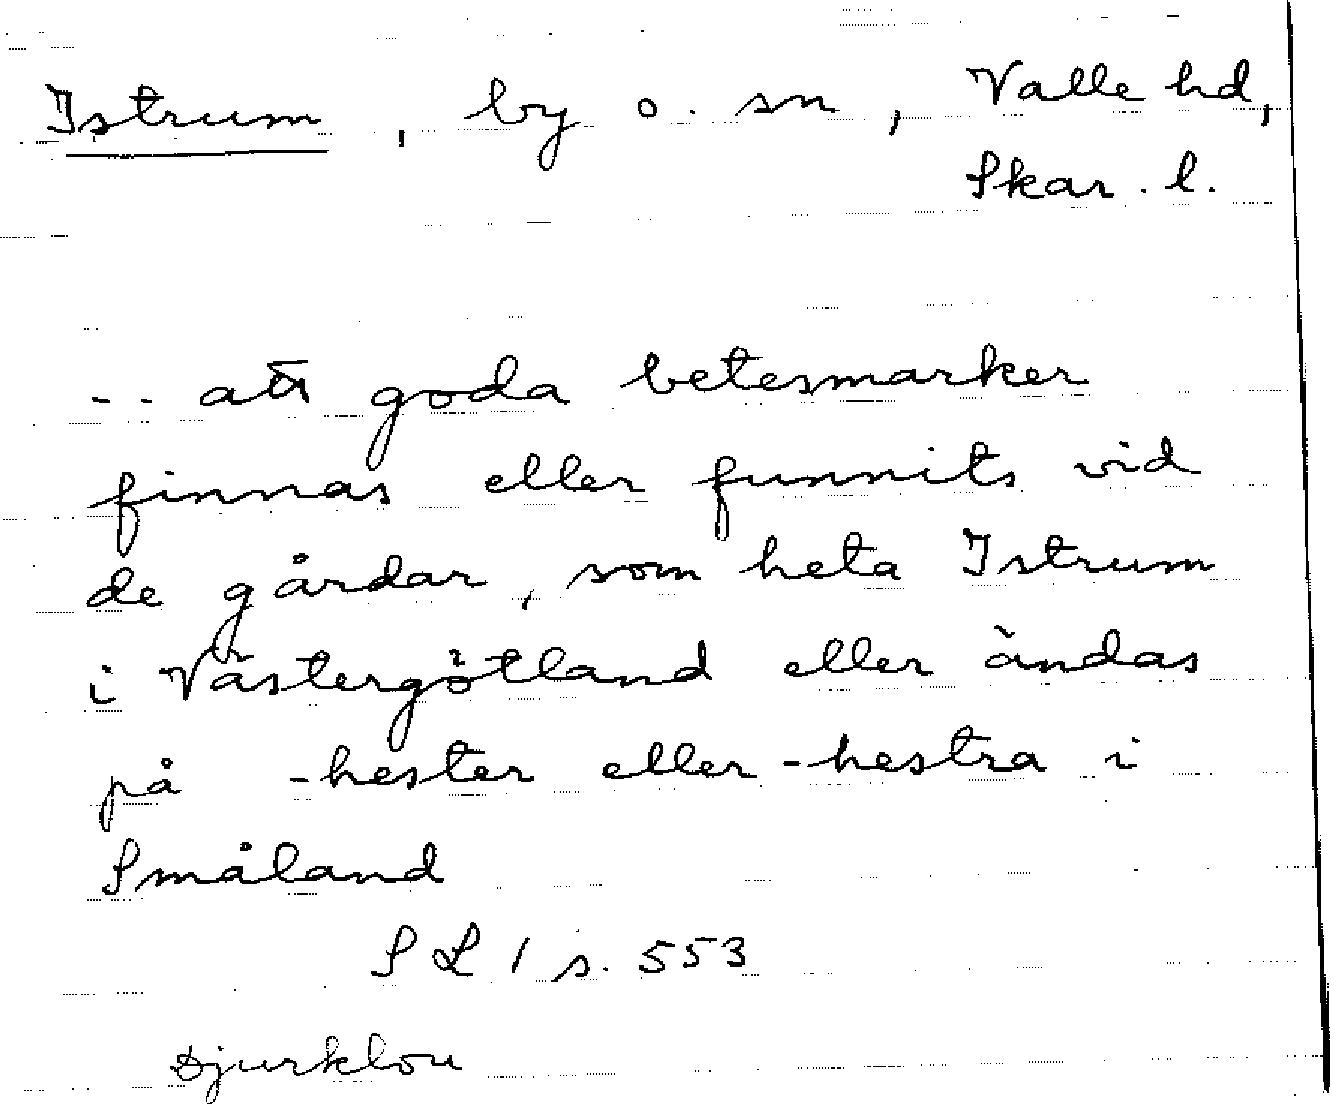 Istrum, by o. sn, Valle hd,
Skar. l.
-- att goda betesmarker
finnas eller funnits vid
de gårdar, som heta Istrum
i Västergötland eller ändas
på -hester eller -hestra i
Småland
SL 1 s. 553
Djurklou